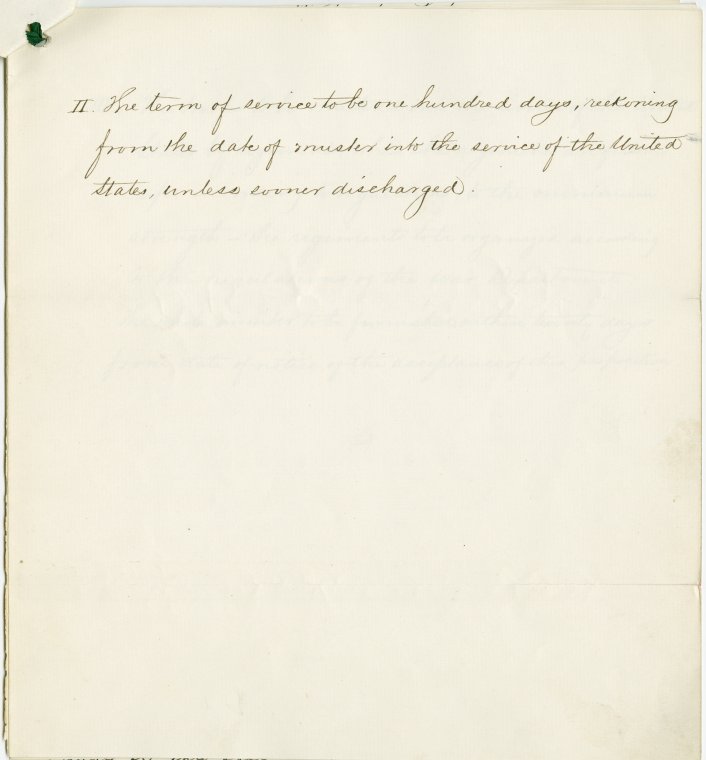 II. The term of service to be one hundred days, reckoning
from the date of muster into the service of the United
States, unless sooner discharged.